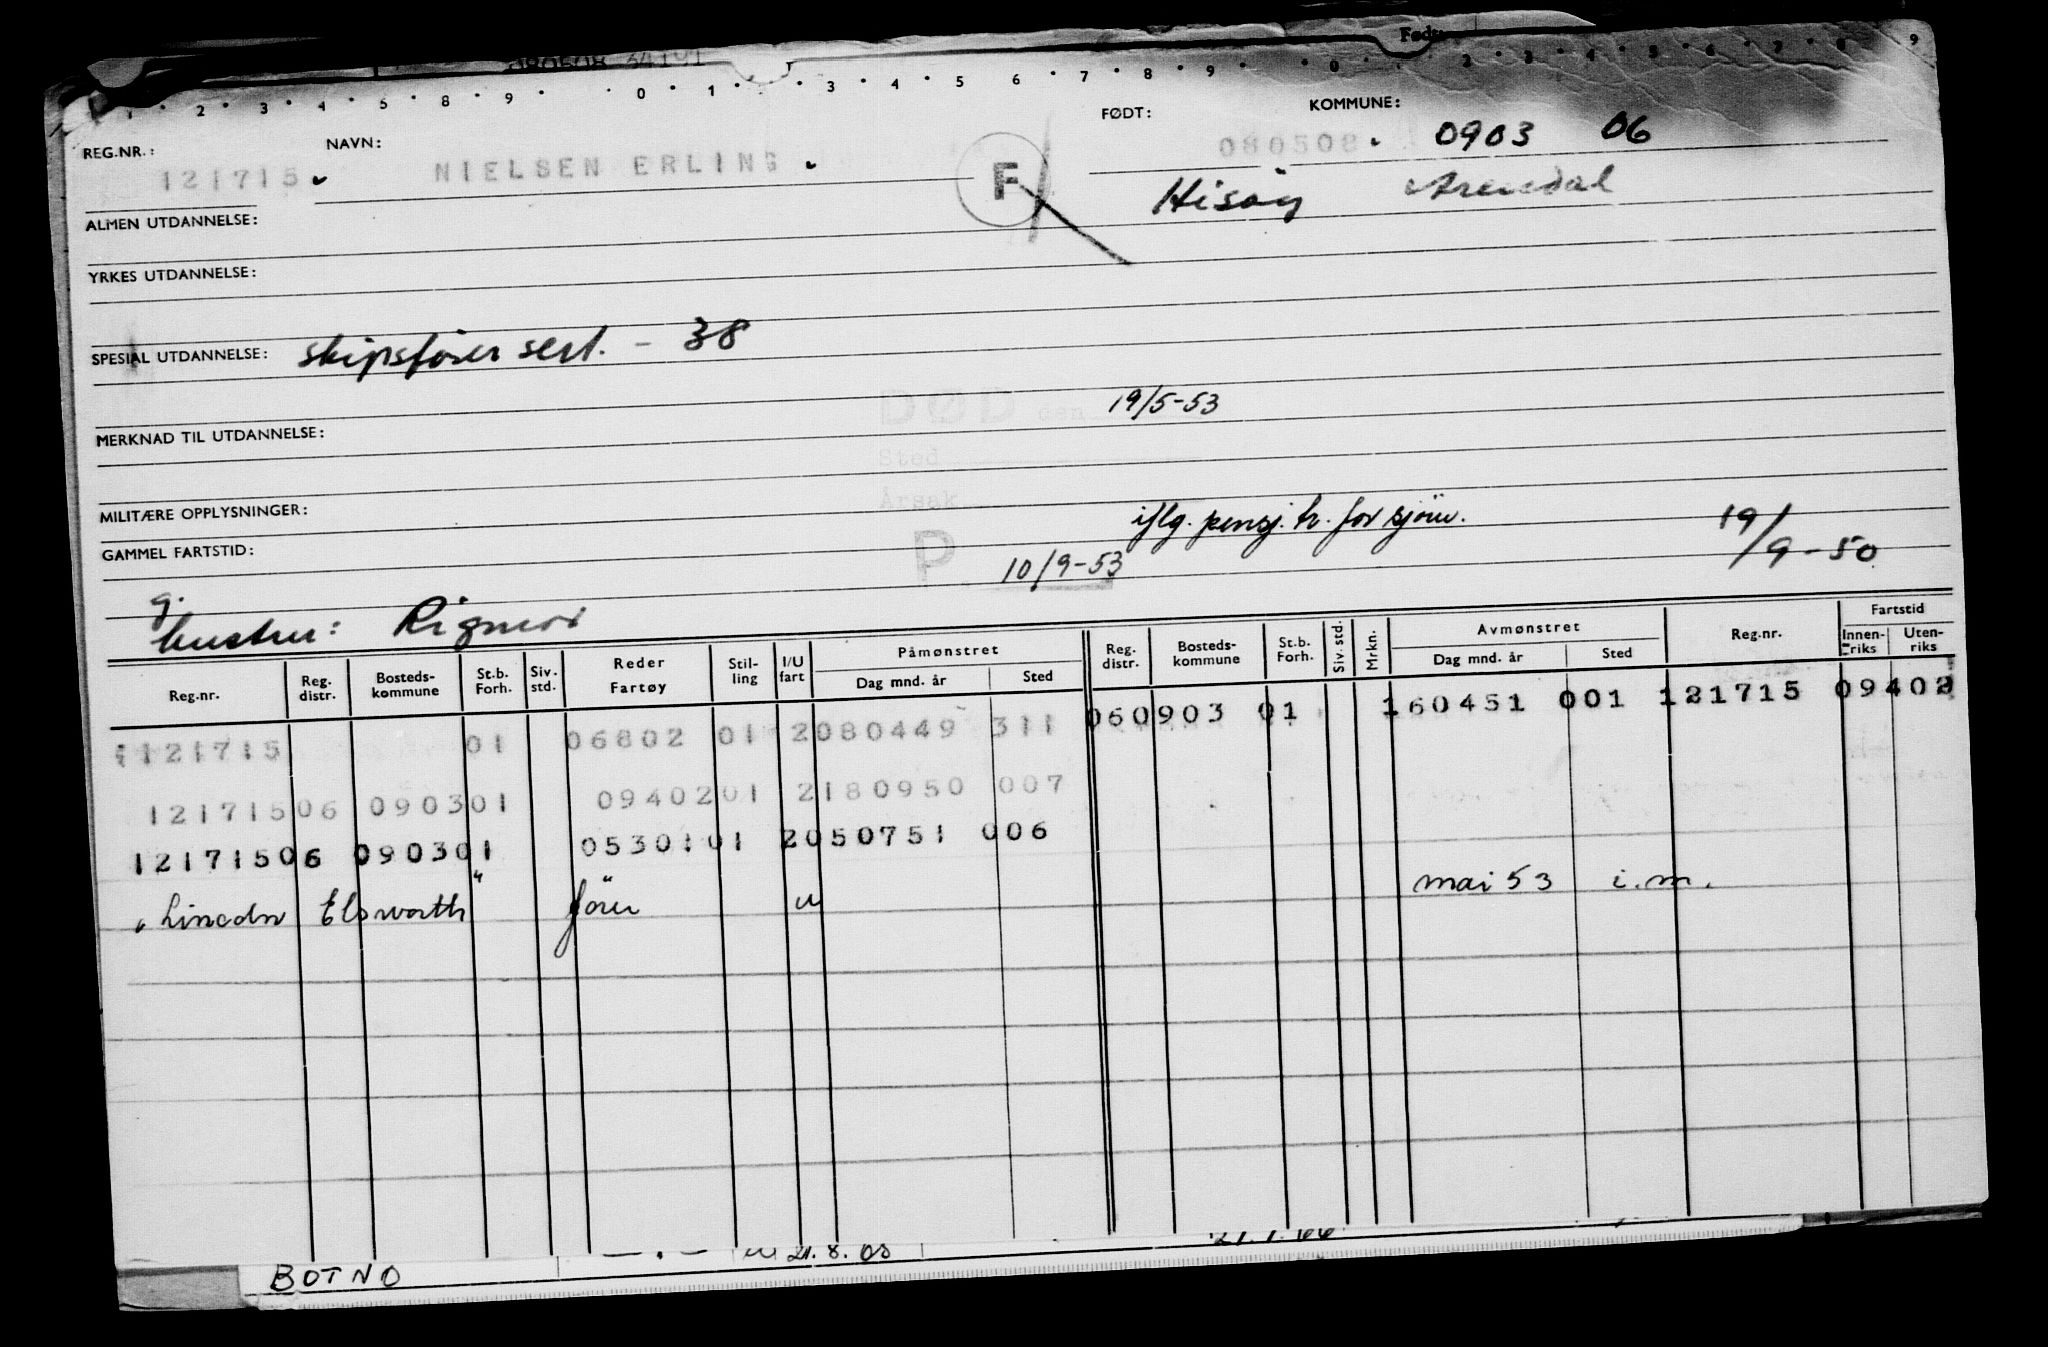 080508 34191
Født:
1 2 3 4 5 8 9 0 1 3 4 5 6 7 8 9 0 2 3 4 5 6 7 8 9
REG.NR.: NAVN: FØDT: KOMMUNE:
121715 NIELSEN ERLING F 080508 0903 06
Hisøy Arendal
ALMEN UTDANNELSE:
YRKES UTDANNELSE:
SPESIAL UTDANNELSE: skipsfører sert. - 38
DØD den 19/5-53
MERKNAD TIL UTDANNELSE:
Sted
Årsak
MILITÆRE OPPLYSNINGER: iflg. pensj. tr. for sjöm. 19/9-50
GAMMEL FARTSTID:
P. 10/9-53
g.
hustru: Rigmor
Reg.nr. Reg. distr. Bosteds-kommune St.b. Forh. Siv. std. Reder Fartøy Stil-ling I/U fart Påmønstret Dag mnd. år Sted Reg. distr. Bosteds-kommune St.b. Forh. Siv. std. Mrkn. Avmønstret Dag mnd. år Sted Reg.nr. Fartstid Innen-riks Uten-riks
121715 01 06802 01 2080449 311 060903 01 160451 001 121715 09402
12171506 090301 0940201 2180950 007
12171506 090301 0530101 2050751 006
"Lincoln Elsworth" förer u mai 53 i.m.
21.8.08 21.1.66
BOTNO